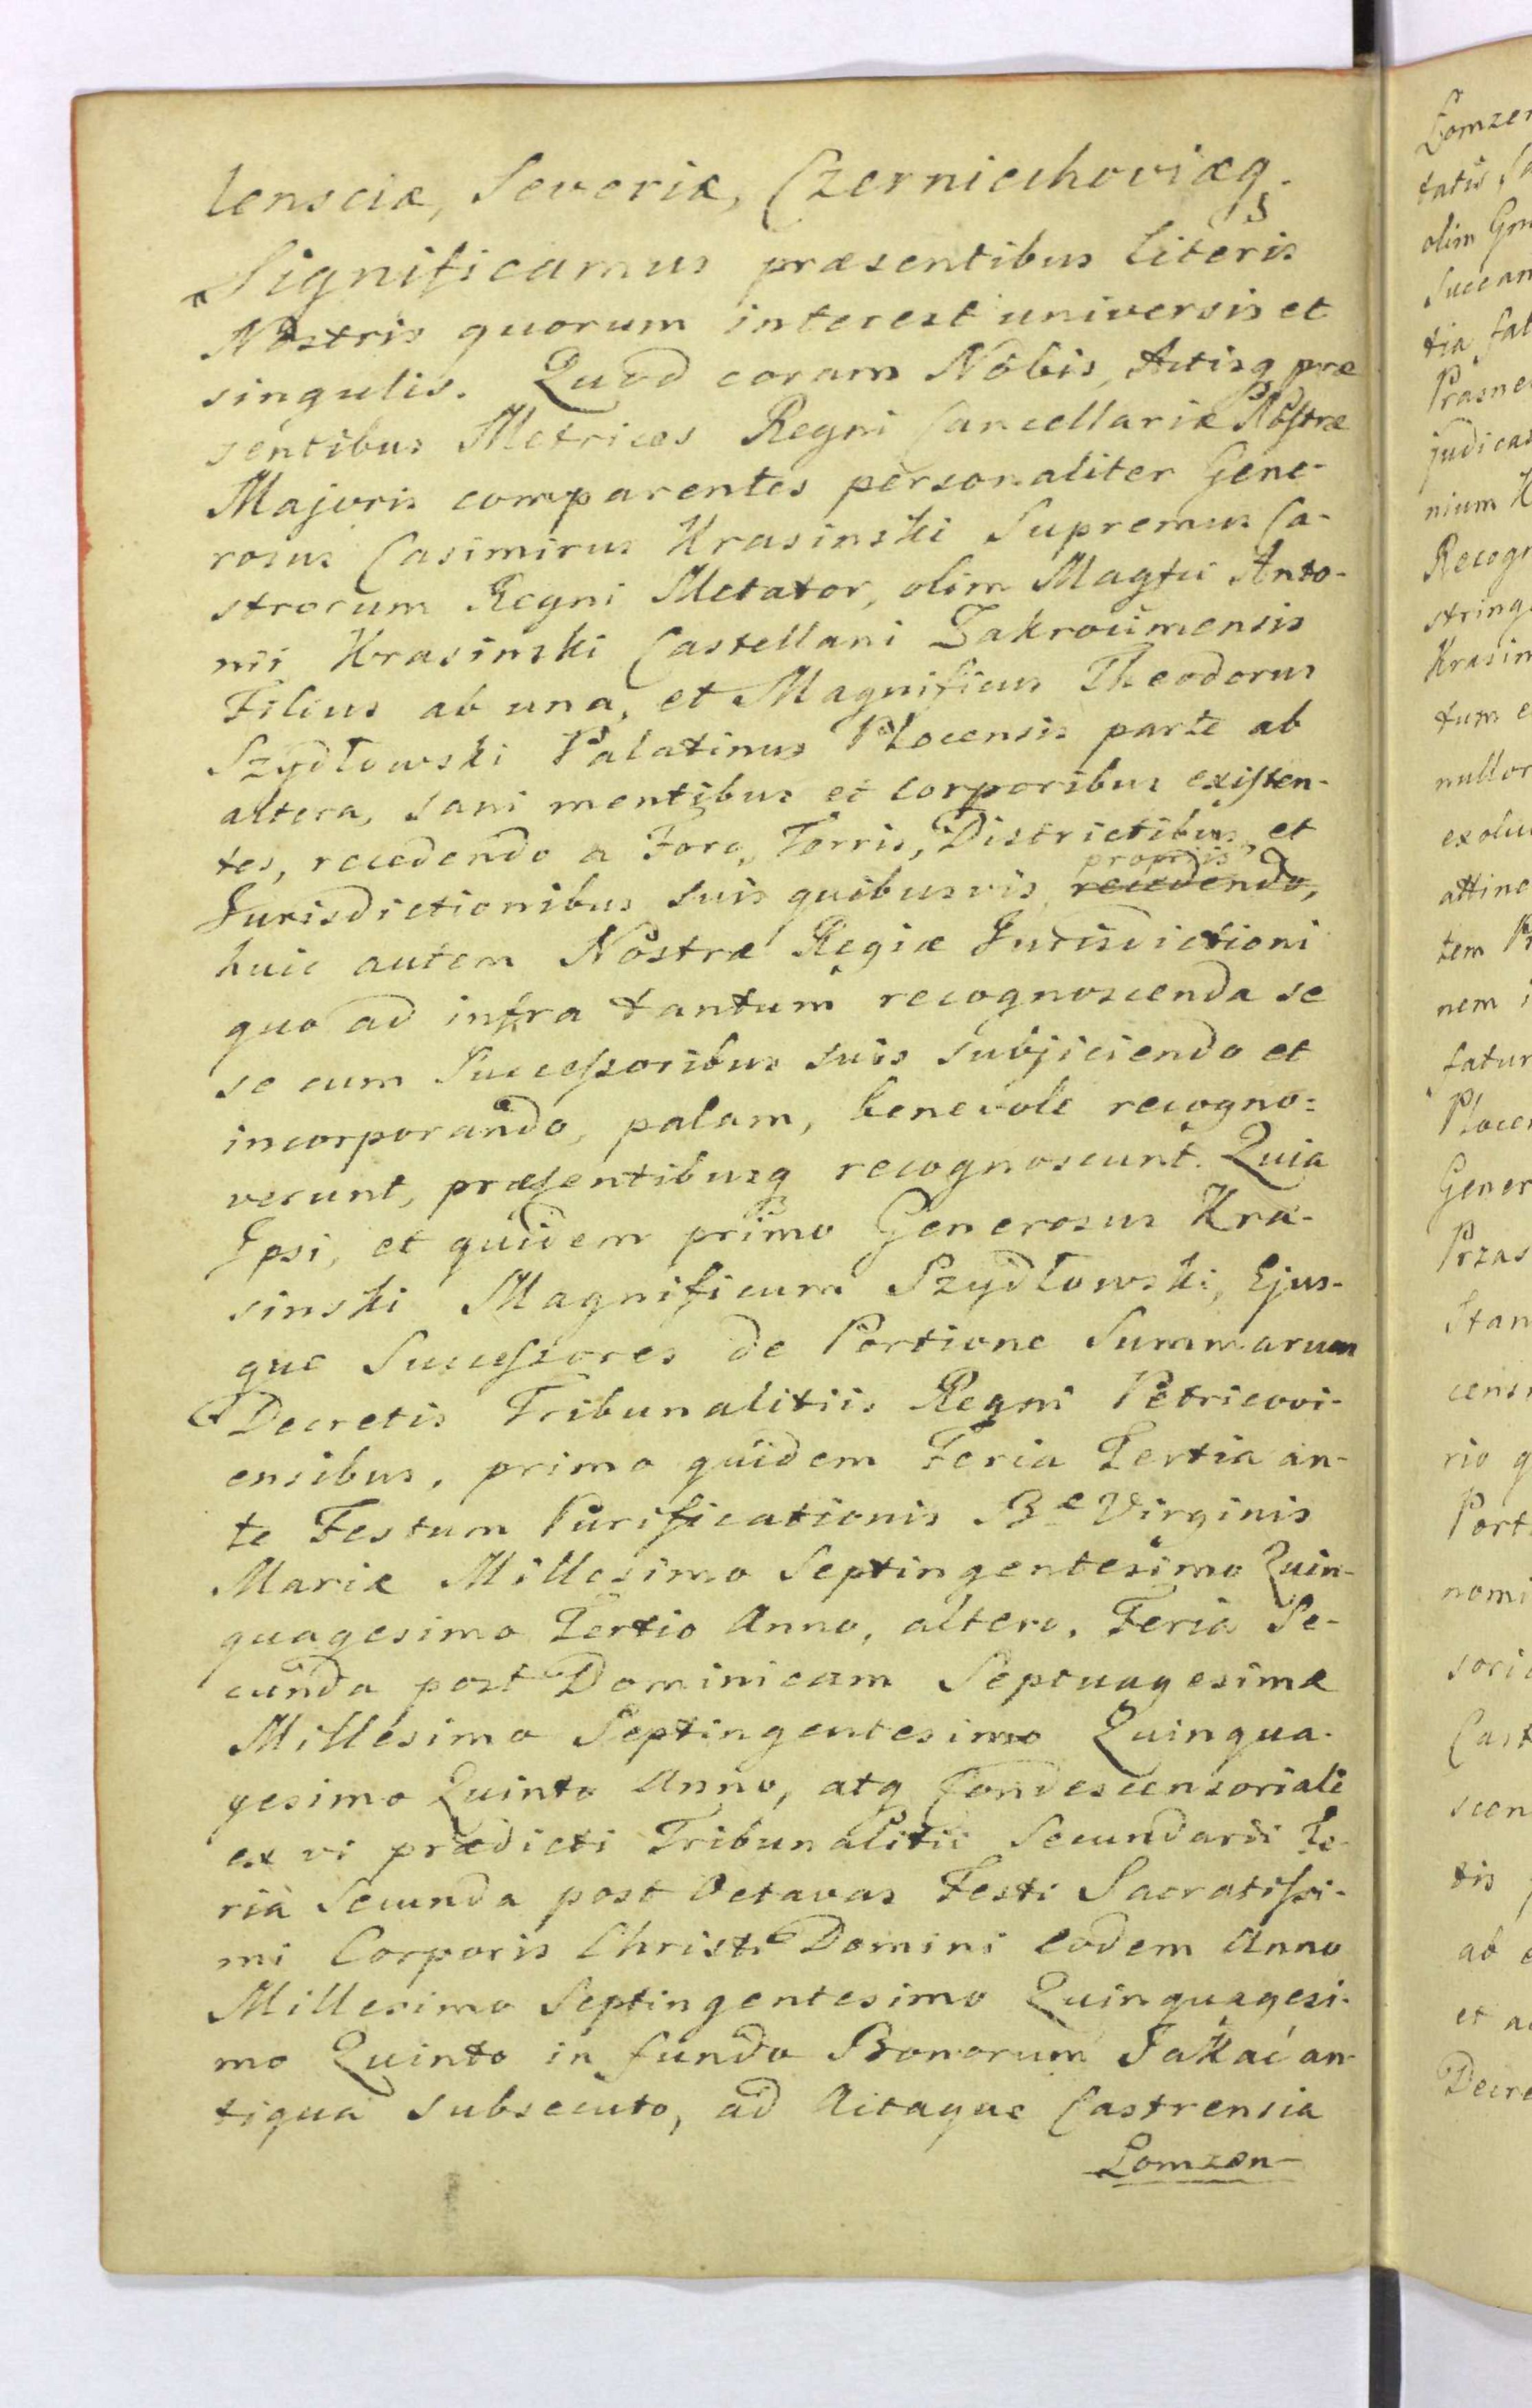 lensciæ, Severiæ, Czerniechoviæq.
Significamus præsentibus Literis
Nostris quorum interest universis et
singulis. Quod coram Nobis, Actisq præ
sentibus Metrices Regni Cancellariæ Nostræ
Majoris comparentes personaliter Gene-
rosus Casimirus Krasinski Supremus Ca-
strorum Regni Metator, olim Magfci Anto-
nii Krasinski Castellani Zakroumensis
Filius ab una, et Magnificus Theodorus
Szydłowski Palatinus Plocensis parte ab
altera, sani mentibus et corporibus existen-
tes, recedendo a Foro, Terris, Districtibus, et
Jurisdictionibus suis quibusvis propriis recedendo,
huic autem Nostræ Regiæ Jurisdictioni
quo ad infra tantum recognoscenda se
se cum Successoribus suis subjiciendo et
incorporando, palam, benevole recogno=
verunt, præsentibusq recognoscunt. Quia
Ipsi, et quidem primo Generosus Kra-
sinski Magnificum Szydłowski, Ejus-
que Successores de Portione Summarum
Decretis Tribunalitiis Regni Petricovi-
ensibus, primo quidem Feria Tertia an-
te Festum Purificationis Bæ Virginis
Mariæ Millesimo Septingentesimo Quin-
quagesimo Tertio Anno, altero, Feria Se-
cunda post Dominicam Septuagesimæ
Millesimo Septingentesimo Quinqua-
gesimo Quinto Anno, atq Condescensoriali
ex vi prædicti Tribunalitii Secundarii Fe-
ria Secunda post Octavas Festi Sacratissi-
mi Corporis Christi Domini eodem Anno
Millesimo Septingentesimo Quinquagesi-
mo Quinto in fundo Bonorum Jakać an-
tiqua subsecuto, ad Acitaque Castrensia
Lomzen-
Lomzen
tatis
olim
Succan
tia
Prasne
judicas
nium K
Recogn
string
Krasin
tum e
nullor
exolu
attine
tem
nem i
tatur
Ploce
Gener
Przas
Stan
cens
rio q
Port
nomi
sori
Cast
scen
tis
ab e
et a
Decre